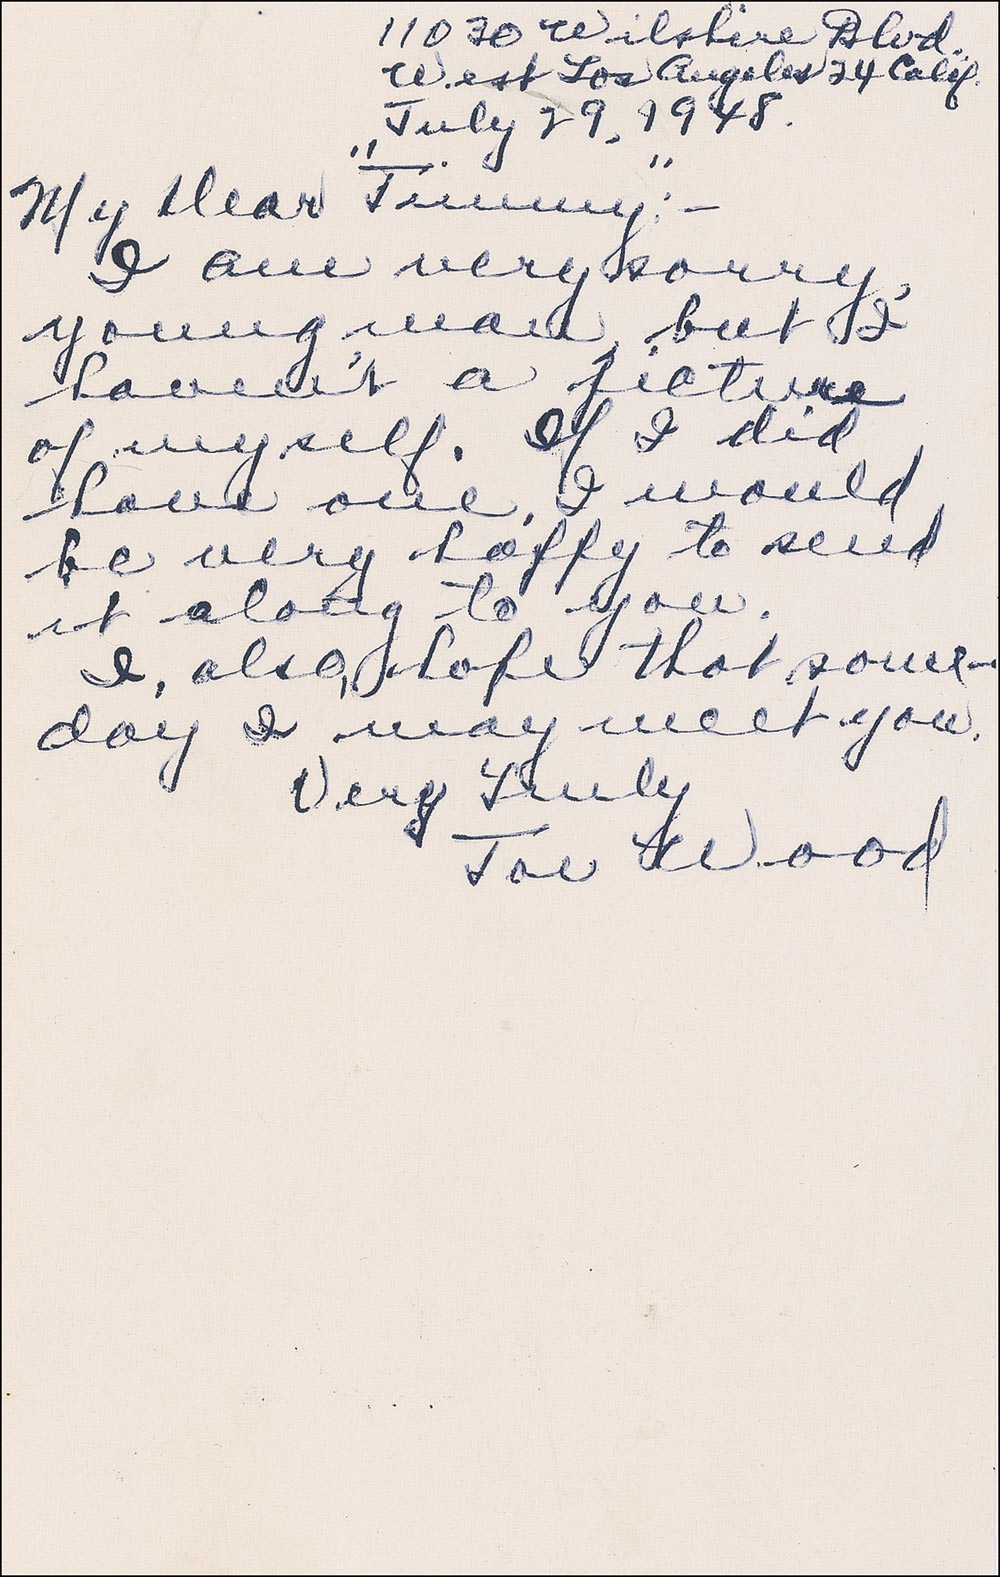 11030 Wilshire Blvd.
West Los Angeles 24 Calif.
July 29, 1948.
My Dear "Jimmy":-
I am very sorry,
young man, but I
haven't a picture
of myself. If I did
have one, I would
be very happy to send
it along to you.
I, also, hope that some-
day I may meet you.
Very Truly
Joe Wood